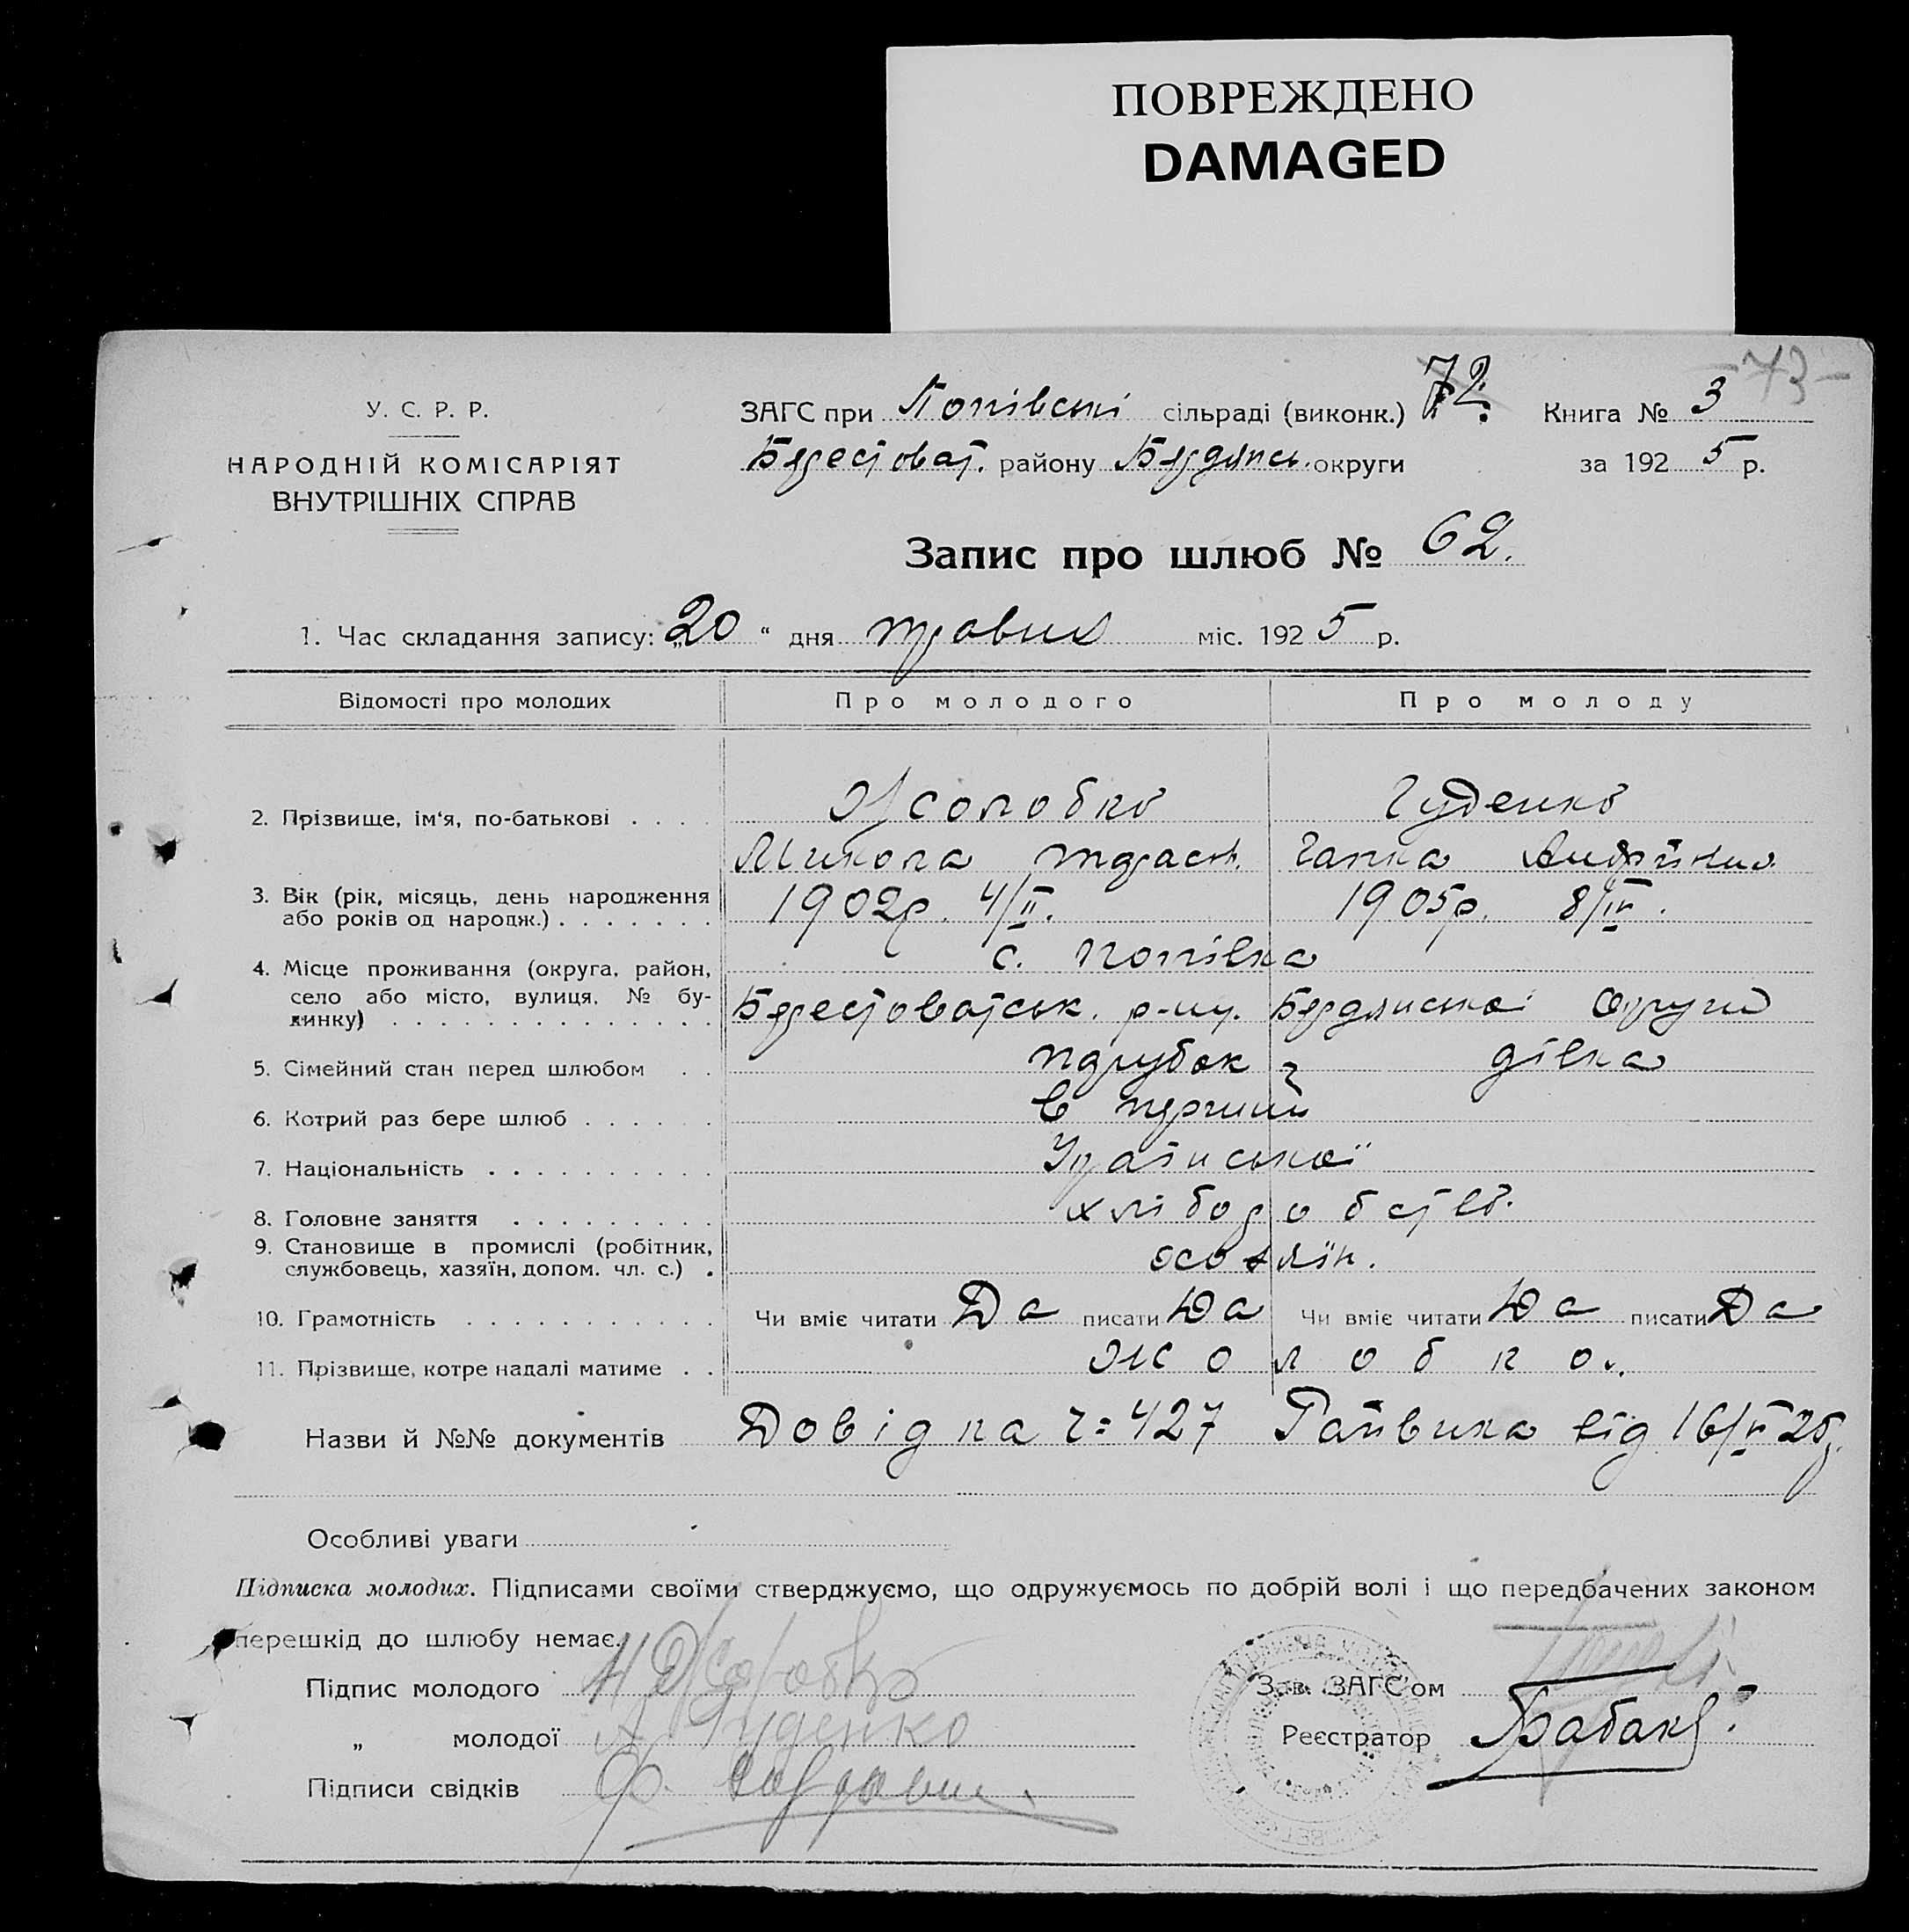 ПОВРЕЖДЕНО
DAMAGED
-73-
72.
У. С. Р. Р.
НАРОДНІЙ КОМІСАРІЯТ
ВНУТРІШНІХ СПРАВ
ЗАГС при Попівські сільраді (виконк.) Книга № 3
Берестоват. району Бердянсь. округи за 1925 р.
Запис про шлюб № 62.
1. Час складання запису: „20“ дня травня міс. 1925 р.
Відомості про молодих Про молодого Про молоду
2. Прізвище, ім'я, по-батькові . . . . Жолобко Гуденко
Микола Тарас. Ганна Андріївна
3. Вік (рік, місяць, день народження 1902р. 4/II. 1905р. 8/IV.
або років од народж.) . . . . . . .
4. Місце проживання (округа, район, с. Попівка
село або місто, вулиця, № бу-
динку) . . . . . . . . . . . . . Берестоватськ. р-ну. Бердянської Округи
5. Сімейний стан перед шлюбом . . парубок дівка
6. Котрий раз бере шлюб . . . . . . в перший
7. Національність . . . . . . . . . . Української
8. Головне заняття . . . . . . . . . хліборобств.
9. Становище в промислі (робітник,
службовець, хазяїн, допом. чл. с.) .
10. Грамотність . . . . . . . . . . . Чи вміє читати Да писати Да Чи вміє читати Да писати Да
11. Прізвище, котре надалі матиме . . Жолобко.
Назви й №№ документів Довідка ч: 427 Райвика від 16/V 25р.
Особливі уваги
Підписка молодих. Підписами своїми стверджуємо, що одружуємось по добрій волі і що передбачених законом
перешкід до шлюбу немає.
Підпис молодого Н Жолобко Зав. ЗАГС'ом
„ молодої А Гуденко Реєстратор
Підписи свідків